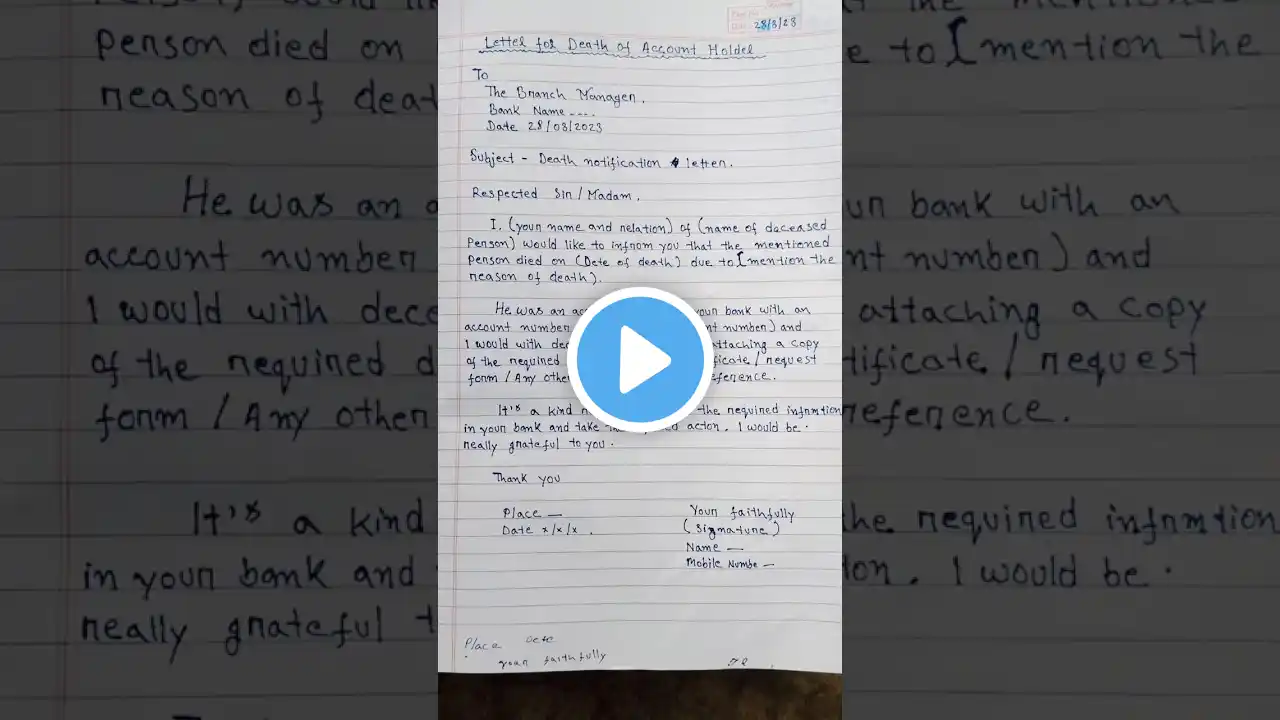 28/3/23
Letter for Death of Account Holder
To
The Branch Manager.
Bank Name ....
Date 28/03/2023
Subject - Death notification letter.
Respected Sir/Madam.
I. (your name and relation) of (name of deceased
Person) would like to infrom you that the mentioned
Person died on (Dete of death) due to [mention the
reason of death).
He was an your bank with an
account number nt number) and
I would with attaching a copy
of the required ificate/request
form/Any other reference.
It's a kind the required infrmtion
in your bank and take acton. I would be.
really grateful to you.
Thank you
Place —
Date x/x/x.
Your faithfully
(Signature)
Name —
Mobile Numbe —
Place Dete
your faithfully